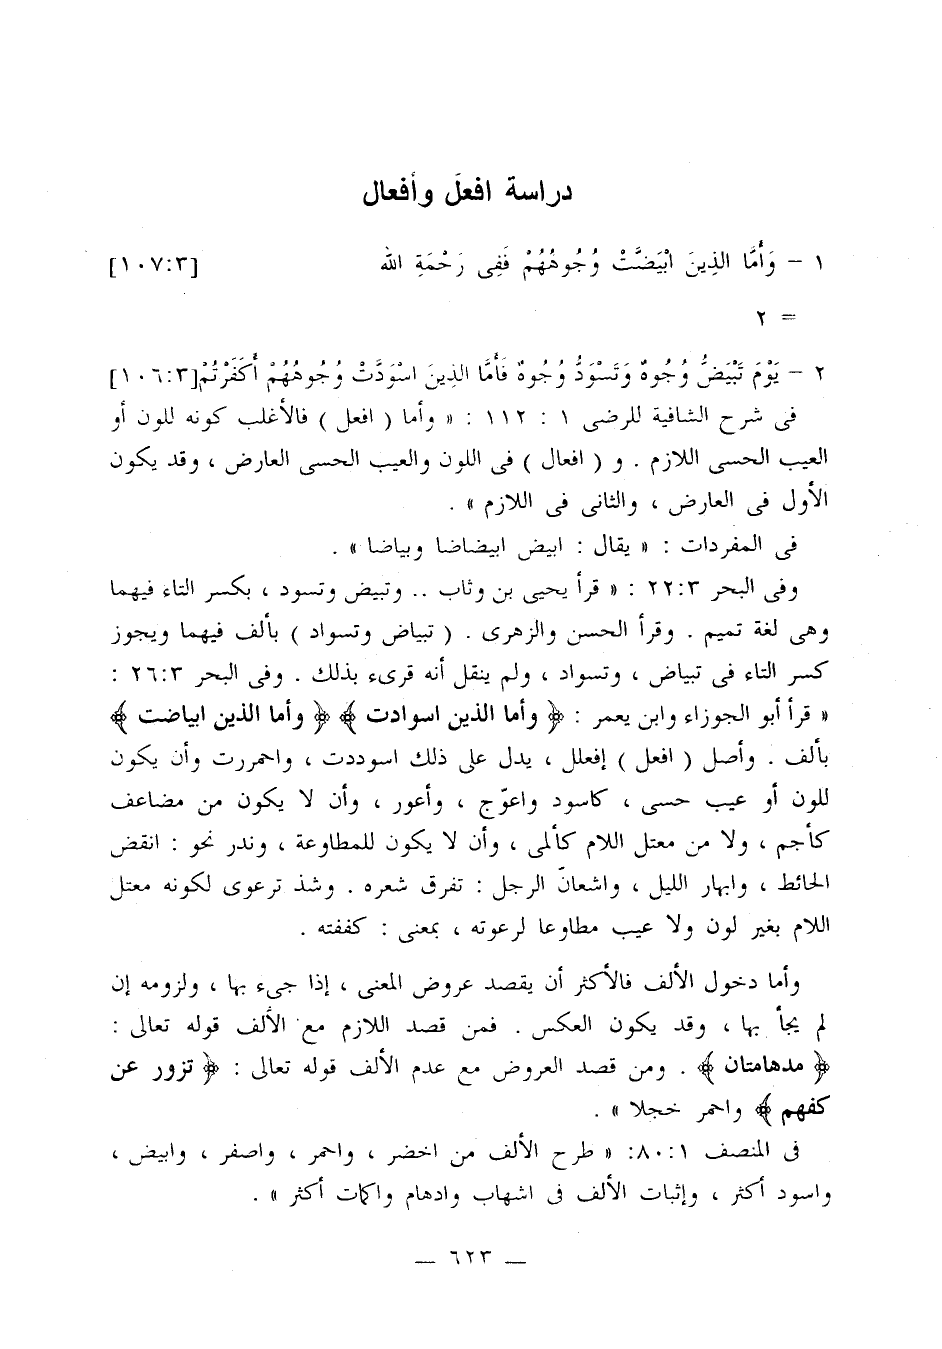 دراسة افعلَ وأفعال
١ – وَأَمَّا الذِينَ ابْيَضَّتْ وُجُوهُهُمْ فَفِى رَحْمَةِ الله [١٠٧:٣]
= ٢
٢ – يَوْمَ تَبْيَضُّ وُجُوهٌ وَتَسْوَدُّ وُجُوهٌ فَأَمَّا الذِينَ اسْوَدَّتْ وُجُوهُهُمْ أَكَفَرْتُمْ [١٠٦:٣]
فى شرح الشافية للرضى ١ : ١١٢ : « وأما ( افعل ) فالأغلب كونه للون أو
العيب الحسى اللازم . و ( افعال ) فى اللون والعيب الحسى العارض ، وقد يكون
الأول فى العارض ، والثانى فى اللازم » .
فى المفردات : « يقال : ابيض ابيضاضا وبياضا » .
وفى البحر ٢٢:٣ : « قرأ يحيى بن وثاب .. وتبيض وتسود ، بكسر التاء فيهما
وهى لغة تميم . وقرأ الحسن والزهرى . ( تبياض وتسواد ) بألف فيهما ويجوز
كسر التاء فى تبياض ، وتسواد ، ولم ينقل أنه قرىء بذلك . وفى البحر ٢٦:٣ :
« قرأ أبو الجوزاء وابن يعمر : ﴿ وأما الذين اسوادت ﴾ ﴿ وأما الذين ابياضت ﴾
بألف . وأصل ( افعل ) إفعلل ، يدل على ذلك اسوددت ، واحمررت وأن يكون
للون أو عيب حسى ، كاسود واعوّج ، وأعور ، وأن لا يكون من مضاعف
كأجم ، ولا من معتل اللام كألمى ، وأن لا يكون للمطاوعة ، وندر نحو : انقض
الحائط ، وابهار الليل ، واشعانّ الرجل : تفرق شعره . وشذ ترعوى لكونه معتل
اللام بغير لون ولا عيب مطاوعا لرعوته ، بمعنى : كففته .
وأما دخول الألف فالأكثر أن يقصد عروض المعنى ، إذا جىء بها ، ولزومه إن
لم يجأ بها ، وقد يكون العكس . فمن قصد اللازم مع الألف قوله تعالى :
﴿ مدهامتان ﴾ . ومن قصد العروض مع عدم الألف قوله تعالى : ﴿ تزور عن
كفهم ﴾ واحمر خجلا » .
فى المنصف ٨٠:١: « طرح الألف من اخضر ، واحمر ، واصفر ، وابيض ،
واسود أكثر ، وإثبات الألف فى اشهاب وادهام واكمات أكثر » .
— ٦٢٣ —